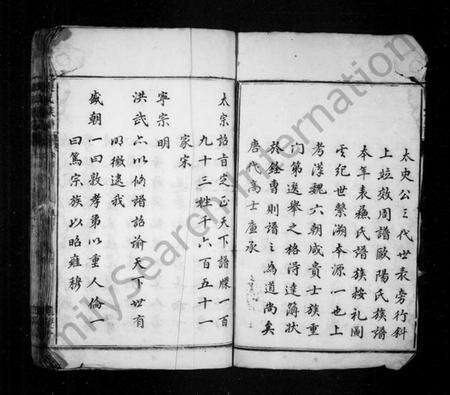 太史公三代世表旁行斜
上竝效周譜歐陽氏族譜
奉年表蘇氏譜族按禮圖
云紀世繫溯本源一也上
考漢魏六朝咸貴士族重
門第選舉之格得達簿狀
族譜之為道尚矣
唐代高士廉承
太宗詔旨定正天下譜牒一百
九十三姓千六百五十一
家宋
寧宗明
洪武亦以脩譜詔諭天下世有
明徵逮我
盛朝一曰敦孝弟以重人倫一
曰篤宗族以昭雍穆
FamilySearch International